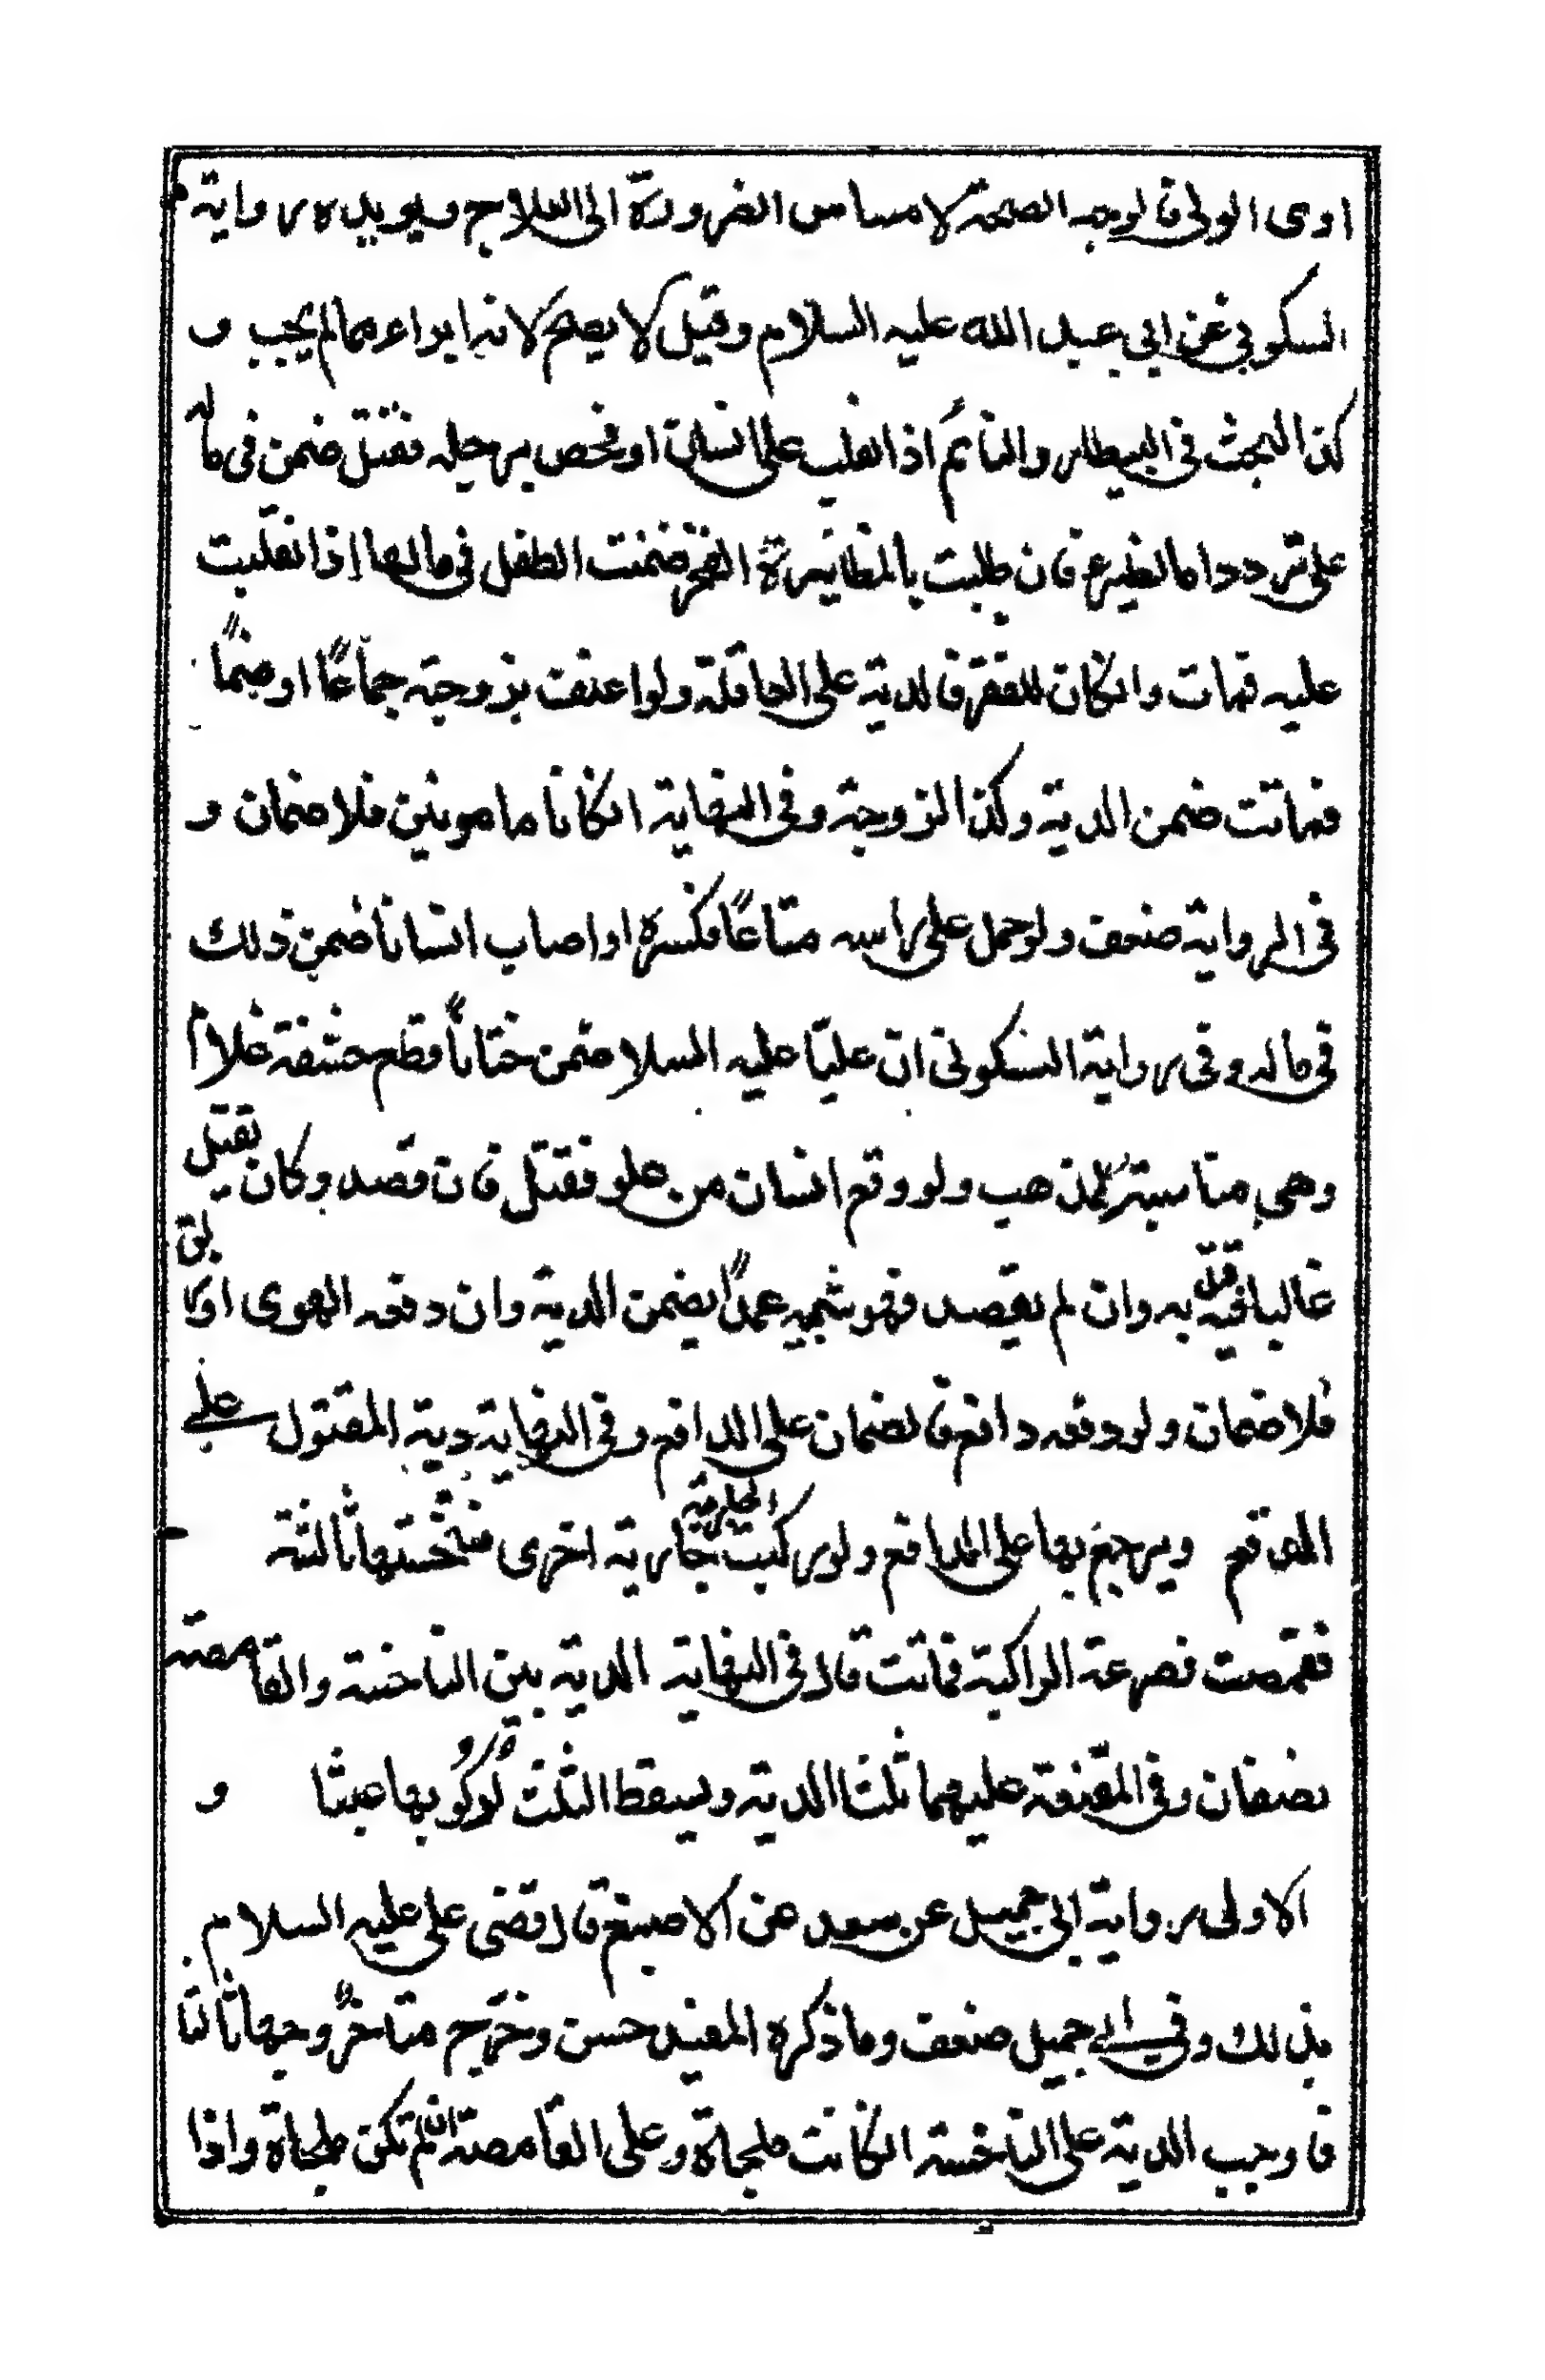 اوى الولى فالوجه الصحة لامساس الضرورة الى العلاج ويويده رواية
السكونى عن ابى عبد الله عليه السلام وقيل لا يصح لانه ابراء ممالم يجب و
كذا البحث فى البيطار والنائم اذا انقلب على انسان او فحص برجله فقتل ضمن فى ماله
على تردد اما الظير فان طلبت بالمظائرة الفخر ضمنت الطفل فى مالها اذا انقلبت
عليه فمات وانكان للفقر فالدية على العاقلة ولو اعنف بزوجته جماعًا او ضمًا
فماتت ضمن الدية وكذا الزوجة وفى النهاية انكانا مامونين فلا ضمان و
فى الرواية ضعف ولو حمل على راسه متاعًا فكسره او اصاب انسانا ضمن ذلك
فى ماله وفى رواية السكونى ان عليّا عليه السلا ضمن ختانًا قطع حشفة غلام
وهى مناسبة للمذهب ولو وقع انسان من علو فقتل فان قصد وكان يقتل
غالبا قتل به وان لم يقصد فهو شبيه عمدًا يضمن الدية وان دفعه الهوى او زلق
فلا ضمان ولو دفعه دافع فالضمان على الدافع وفى النهاية دية المقتول على
الواقع ويرجع بها على الدافع ولو ركبت جارية اخرى فنخستها ثالثة
فقمصت فصرعت الراكبة فماتت قال فى النهاية الدية بين الناخسة والقامصة
نصفان وفى المقنعة عليهما ثلثا الدية ويسقط الثلث لركوبها عبثا و
الاولى رواية ابى جميل عن سعد عن الاصبغ قال قضى على عليه السلام
بذلك وفى ابى جميل ضعف وما ذكره المفيد حسن وخرّج متاخرٌ وجها ثالثا
فاوجب الدية على الناخسة انكانت ملجاة وعلى القامصة ان لم تكن ملجاة واذا